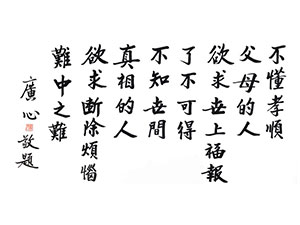 不懂孝順
父母的人
欲求世上福報
了不可得
不知世間
真相的人
欲求斷除煩惱
難中之難
廣心敬題